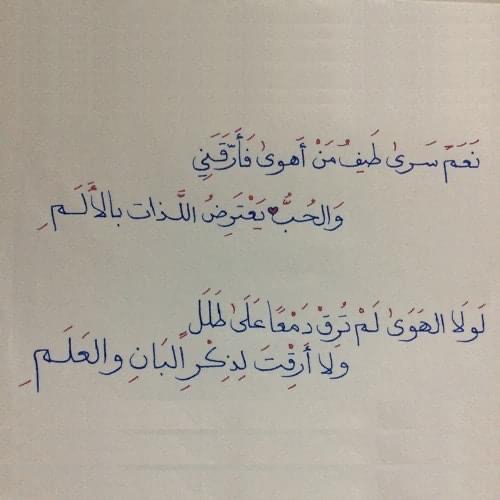 نَعَمْ سَرىٰ طَيفُ مَنْ أَهوىٰ فَأَرَّقَنِي
وَالحُبُّ يَعْتَرِضُ اللَّذات بالأَلَمِ
لَولَا الهَوَىٰ لَمْ تُرِقْ دَمْعًا عَلَىٰ طَلَلِ
ولا أَرِقْتَ لِذِكْرِ البَانِ والعَلَمِ